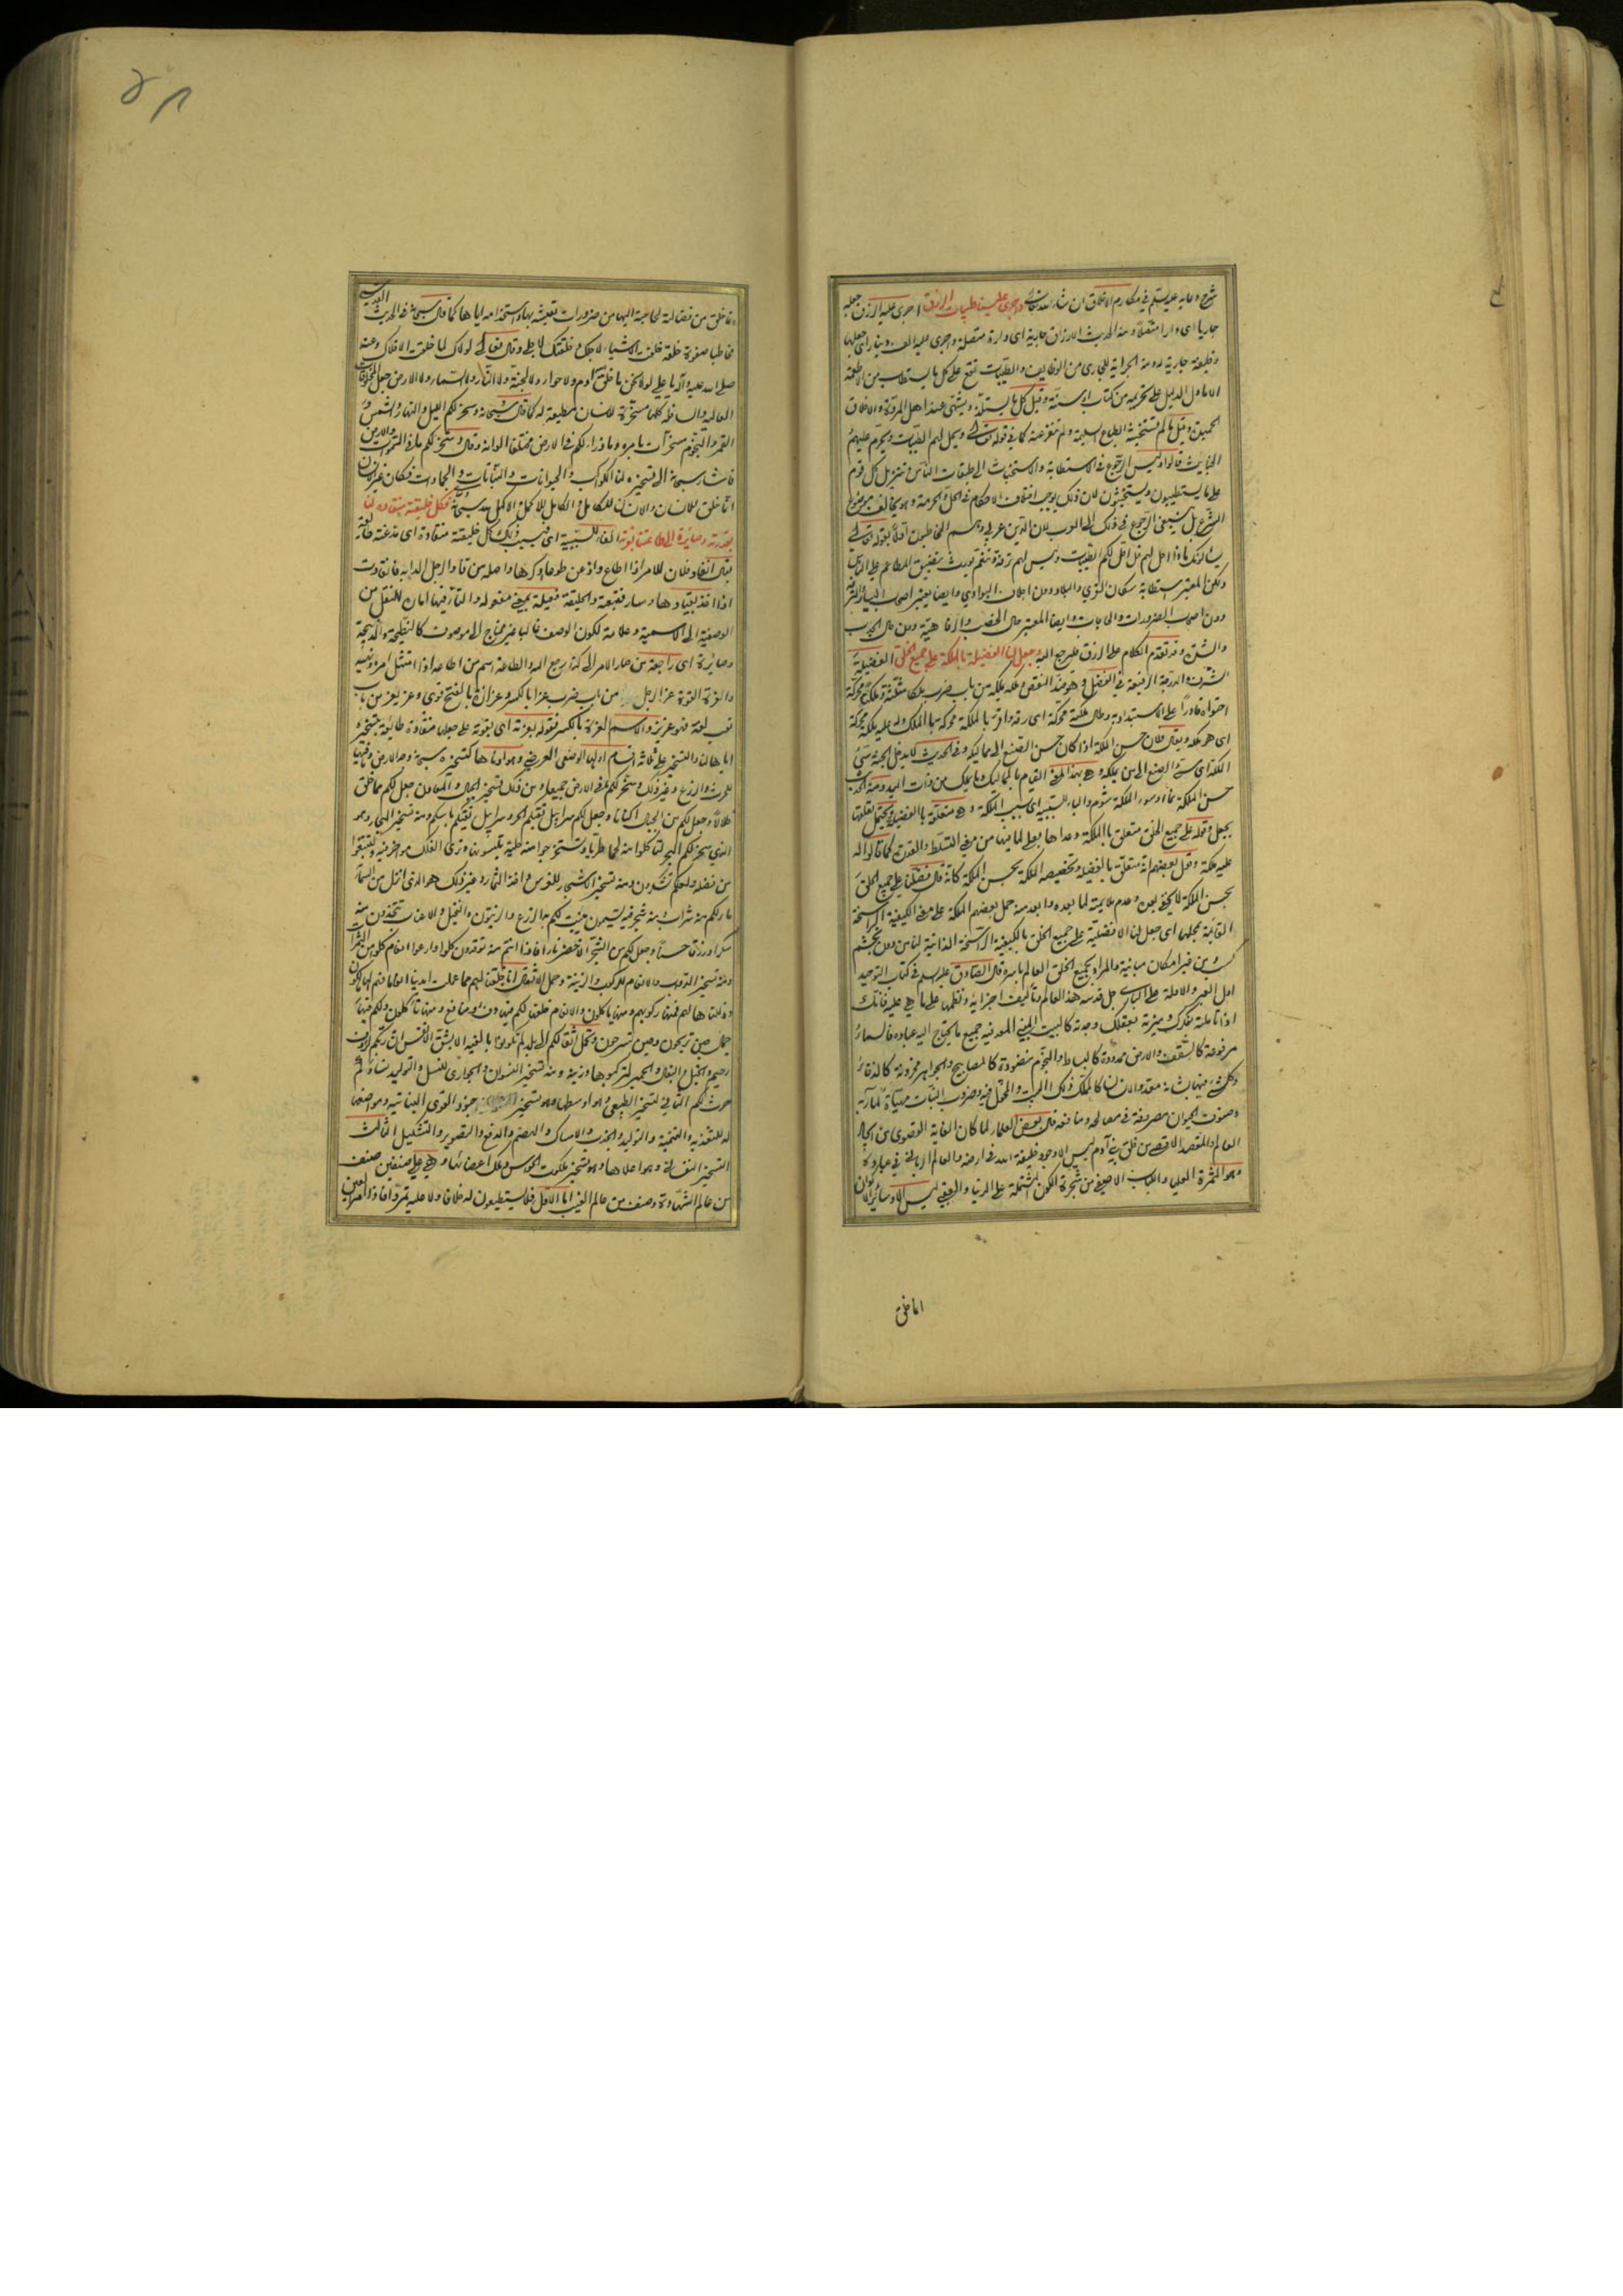 شرح دعائه عليه السلم في مكارم الاخلاق ان شاء الله تعالى واجرى علينا طيبات الرزق اجرى عليه الرزق جعله
جاريا اى دارا متصلا ومنه الحديث الارزاق جارية اى دارة متصلة واجرى عليه الف دينار اى جعلها
وظيفة جارية له ومنه الجراية للجارى من الوظايف والطيبات تقع على كل ما يستطاب من الاطعمة
الا ما دل الدليل على تحريمه من كتاب او سنة وقيل كل ما يستلذ ويشتهى عند اهل المروة والاخلاق
الجميلة وقيل ما لم تستخبثه الطباع السليمة ولم تنفر عنه كما في قوله تعالى ويحل لهم الطيبات ويحرم عليهم
الخبايث قالوا وليس الرجوع في الاستطابة والاستخباث الى طبقات الناس وتنزيل كل قوم
على ما يستطيبون ويستخبثون لان ذلك يوجب اختلاف الاحكام في الحل والحرمة وهو يخالف موضوع
الشرع بل ينبغي الرجوع في ذلك الى العرب لان الدين عربي وهم المخاطبون اولا بقوله تعالى
يسئلونك ماذا احل لهم قل احل لكم الطيبات وليس لهم ترفة وتنعم يورث تضييق المطاعم على الناس
ولكن المعتبر استطابة سكان القرى والبلاد دون اجلاف البوادي وايضا يعتبر اصحاب اليسار والترفه
دون اصحاب الضرورات والحاجات وايضا المعتبر حال الخصب والرفاهية دون حال الجدب
والشدة وقد تقدم الكلام على الرزق فليرجع اليه وجعل لنا الفضيلة بالملكة على جميع الخلق الفضيلة
الشرف والدرجة الرفيعة في الفضل وهو ضد النقص وملكه يملكه من باب ضرب ملكا مثلثة وملكة محركة
احتواه قادرا على الاستبداد به وطال ملكته محركة اى رقه واقر بالملكة محركة بالملك وله عليه ملكة محركة
اى هو ملكه ويقال فلان حسن الملكة اذا كان حسن الصنع الى مماليكه وفي الحديث لا يدخل الجنة سيئ
الملكة اى سيئ الصنع الى من يملكه وهى بهذا المعنى القيام بالمماليك وما يملك من ذات اليد ومنه الحديث
حسن الملكة نماء وسوء الملكة شؤم والباء للسببية اى بسبب الملكة وهى متعلقة بالفضيلة ويحتمل تعلقها
بجعل وقوله على جميع الخلق متعلق بالملكة وعداها بعلى لما فيها من معنى التسلط والقدرة كما قالوا له
عليه ملكة وقول بعضهم انه متعلق بالفضيلة وتخصيصه الملكة بحسن الملكة كانه قال فضلنا على جميع الخلق
بحسن الملكة لا يخفى بعده وعدم ملايمته لما بعده وابعد منه حمل بعضهم الملكة على معنى الكيفية الراسخة
القائمة بمحلها اى جعل لنا الافضلية على جميع الخلق بالكيفية الراسخة الذاتية لنا من دون تجشم
كسب من غير امكان مباينة والمراد بجميع الخلق العالم باسره قال الصادق عليه السلم في كتاب التوحيد
اول العبر والادلة على البارى جل قدسه هذا العالم وتأليف اجزائه ونظمها على ما هى عليه فانك
اذا تاملته بفكرك وميزته بعقلك وجدته كالبيت المبني المعد فيه جميع ما يحتاج اليه عباده فالسماء
مرفوعة كالسقف والارض ممدودة كالبساط والنجوم منضودة كالمصابيح والجواهر مخزونة كالذخائر
وكل شئ فيها لشانه معد والانسان كالمملك ذلك البيت والمخول فيه وضروب النبات مهيأة لمآربه
وصنوف الحيوان مصروفة في مصالحه ومنافعه قال بعض العلماء لما كان الغاية القصوى من ايجاد
العالم والمقصد الاقصى من خلق بني آدم ليس الا وجود خليفة الله في ارضه والعالم الرباني في عباده
وهو الثمرة العليا واللباب الاصفى من شجرة الكون المشتملة على الدنيا والعقبى ليس الا وسائر الاكوان
انما خلق
انما خلق من فضالته لحاجته اليها من ضرورات تعيشه بها واستخدامه اياها كما قال سبحانه في الحديث القدسي
مخاطبا صفوة خلقه خلقت الاشياء لاجلك وخلقتك لاجلى وقال تعالى لولاك لما خلقت الافلاك وعنه
صلى الله عليه وآله يا علي لولا نحن ما خلق الله آدم ولا حواء ولا الجنة ولا النار ولا السماء ولا الارض جعل المخلوقات
العالية والسافلة كلها مسخرة للانسان مطيعة له كما قال سبحانه وسخر لكم الليل والنهار والشمس و
القمر والنجوم مسخرات بامره وما ذرا لكم في الارض مختلفا الوانه وقال وسخر لكم ما في السموات والارض
فاشار سبحانه الى تسخيره لنا الكواكب والحيوانات والنباتات والجمادات فكان غير الانسان
انما خلق للانسان والانسان للكامل والكامل للاكمل والاكمل لله سبحانه فكل خليقته منقادة لنا
بقدرته وصائرة الى طاعتنا بعزته الفاء للسببية اى فبسبب ذلك كل خليقته منقادة اى مذعنة طائعة
يقال انقاد فلان للامر اذا اطاع واذعن طوعا او كرها واصله من قاد الرجل الدابة فانقادت
اذا اخذ بقيادها وسار فتبعته والخليقة فعيلة بمعنى مفعولة والتاء فيها اما للنقل من
الوصفية الى الاسمية وعلامة لكون الوصف غالبا غير محتاج الى موصوف كالنطيحة والذبيحة
وصائرة اى راجعة من صار الامر الى كذا رجع اليه والطاعة اسم من اطاعه اذا امتثل امره ونهيه
والعزة القوة عز الرجل من باب ضرب عزا بالكسر وعزازة بالفتح قوى وعز يعز من باب
تعب لغة فهو عزيز والاسم العزة بالكسر فقوله بعزته اى بقوته على جعلها منقادة طائعة بتسخيره
اياها لنا والتسخير على ثلاثة اقسام اولها الوضعى العرضى وهو ادناها كتسخيره سبحانه وجه الارض وما فيها
للحرث والزرع وغير ذلك وسخر لكم ما في الارض جميعا ومن ذلك تسخير الجبال والمعادن جعل لكم مما خلق
ظلالا وجعل لكم من الجبال اكنانا وجعل لكم سرابيل تقيكم الحر وسرابيل تقيكم باسكم ومنه تسخير البحار وهو
الذي سخر لكم البحر لتاكلوا منه لحما طريا وتستخرجوا منه حلية تلبسونها وترى الفلك مواخر فيه ولتبتغوا
من فضله ولعلكم تشكرون ومنه تسخير الاشجار للغرس واخذ الثمار وغير ذلك هو الذي انزل من السماء
ماء لكم منه شراب ومنه شجر فيه تسيمون ينبت لكم به الزرع والزيتون والنخيل والاعناب تتخذون منه
سكرا ورزقا حسنا وجعل لكم من الشجر الاخضر نارا فاذا انتم منه توقدون كلوا وارعوا انعامكم كلوا من الثمرات
ومنه تسخير الدواب والانعام للركوب والزينة وحمل الاثقال انا خلقنا لهم مما عملت ايدينا انعاما فهم لها مالكون
وذللناها لهم فمنها ركوبهم ومنها ياكلون والانعام خلقها لكم فيها دفء ومنافع ومنها تاكلون ولكم فيها
جمال حين تريحون وحين تسرحون وتحمل اثقالكم الى بلد لم تكونوا بالغيه الا بشق الانفس ان ربكم لرؤف
رحيم والخيل والبغال والحمير لتركبوها وزينة ومنه تسخير النسوان والجواري للنسل والتوليد نساؤكم
حرث لكم الثاني التسخير الطبيعي وهو اوسطها وهو تسخير جنود القوى النباتية ومواضعها
له للتغذية والتنمية والتوليد والجذب والامساك والهضم والدفع والتصوير والتشكيل الثالث
التسخير النفساني وهو اعلاها وهو تسخير ملكوت الحواس وملك اعضائها وهى على صنفين صنف
من عالم الشهادة وصنف من عالم الغيب اما الاول فلا يستطيعون له خلافا ولا عليه تمردا فاذا امر العين